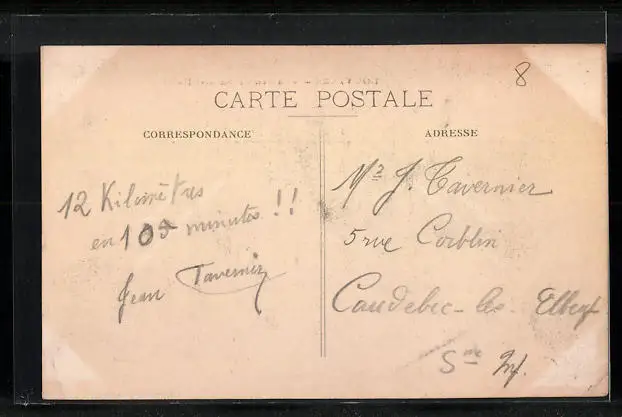 8
CARTE POSTALE
CORRESPONDANCE
12 Kilomètres
en 105 minutes !!
Jean Tavernier
ADRESSE
Mr J. Tavernier
5 rue Corblin
Caudebec-les-Elbeuf
Sne Inf.